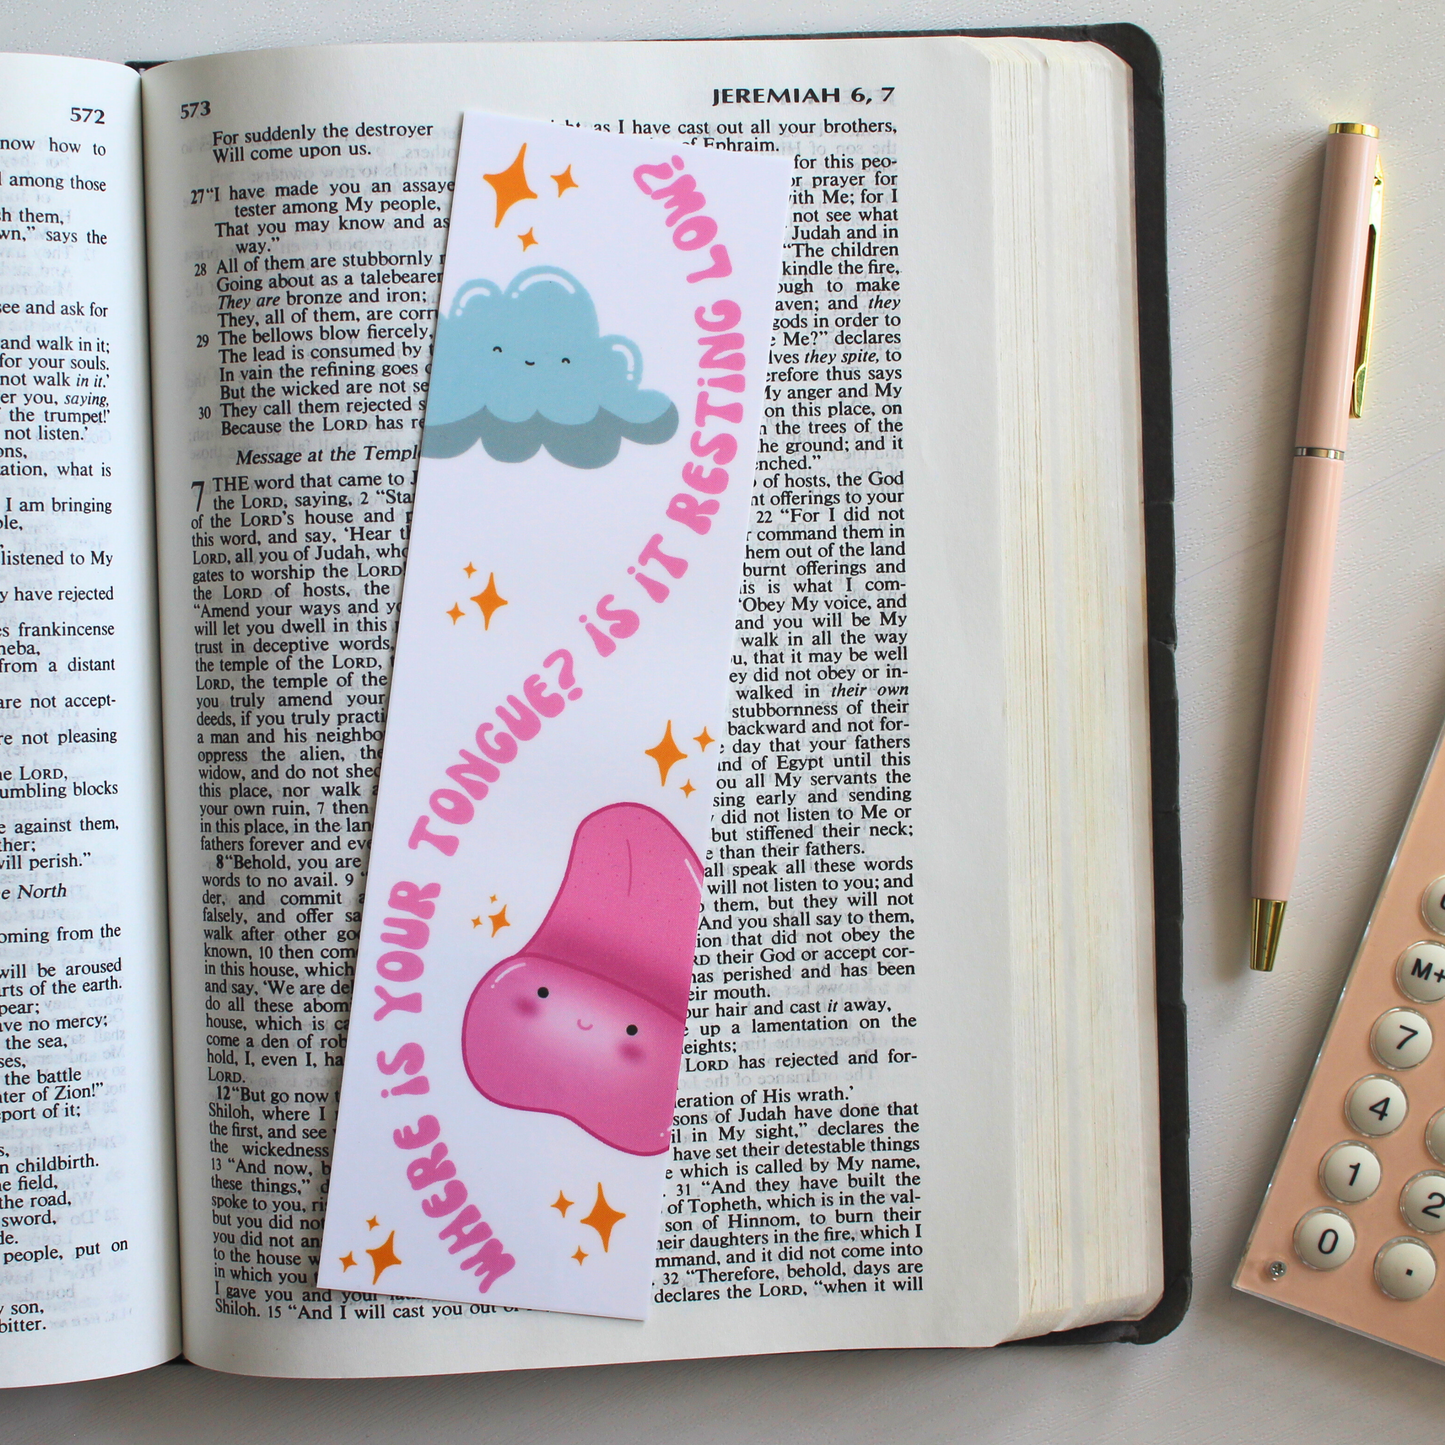 572
now how to
among those
sh them,
wn,” says the
see and ask for
and walk in it;
for your souls.
not walk in it.’
er you, saying,
the trumpet!’
not listen.’
ons,
ation, what is
I am bringing
ple,
listened to My
y have rejected
es frankincense
heba,
from a distant
are not accept-
re not pleasing
he LORD,
umbling blocks
e against them,
ther;
will perish.”
e North
oming from the
will be aroused
arts of the earth.
pear;
ave no mercy;
the sea,
ses,
the battle
hter of Zion!”
eport of it;
s,
n childbirth.
he field,
the road,
sword,
de.
people, put on
y son,
bitter.
573
JEREMIAH 6, 7
For suddenly the destroyer
Will come upon us.
27“I have made you an assaye
tester among My people,
That you may know and as
way.”
28 All of them are stubbornly
Going about as a talebearer
They are bronze and iron;
They, all of them, are corr
29 The bellows blow fiercely,
The lead is consumed by
In vain the refining goes
But the wicked are not se
30 They call them rejected s
Because the LORD has re
Message at the Templ
7 THE word that came to J
the LORD, saying, 2 “Sta
of the LORD’S house and p
this word, and say, ‘Hear th
LORD, all you of Judah, who
gates to worship the LORD
the LORD of hosts, the
“Amend your ways and yo
will let you dwell in this
trust in deceptive words,
the temple of the LORD,
LORD, the temple of the
you truly amend your
deeds, if you truly practi
a man and his neighbo
oppress the alien, the
widow, and do not shed
this place, nor walk a
your own ruin, 7 then
in this place, in the lan
fathers forever and eve
8“Behold, you are
words to no avail. 9
der, and commit a
falsely, and offer sa
walk after other go
known, 10 then com
in this house, which
and say, ‘We are de
do all these abom
house, which is ca
come a den of rob
hold, I, even I, ha
LORD.
12“But go now t
Shiloh, where I
the first, and see
the wickedness
13 “And now, b
these things,” d
spoke to you, ri
but you did not
you did not an
to the house w
in which you
I gave you and your
Shiloh. 15 “And I will cast you out
as I have cast out all your brothers,
of Ephraim.
for this peo-
or prayer for
with Me; for I
not see what
Judah and in
“The children
kindle the fire,
ough to make
aven; and they
gods in order to
Me?” declares
lves they spite, to
erefore thus says
My anger and My
on this place, on
n the trees of the
he ground; and it
enched.”
of hosts, the God
nt offerings to your
22 “For I did not
command them in
hem out of the land
burnt offerings and
his is what I com-
‘Obey My voice, and
and you will be My
walk in all the way
u, that it may be well
ey did not obey or in-
walked in their own
stubbornness of their
backward and not for-
day that your fathers
nd of Egypt until this
ou all My servants the
sing early and sending
did not listen to Me or
but stiffened their neck;
e than their fathers.
all speak all these words
will not listen to you; and
them, but they will not
And you shall say to them,
ion that did not obey the
RD their God or accept cor-
has perished and has been
eir mouth.
our hair and cast it away,
up a lamentation on the
eights;
LORD has rejected and for-
eration of His wrath.’
sons of Judah have done that
il in My sight,” declares the
have set their detestable things
e which is called by My name,
31 “And they have built the
of Topheth, which is in the val-
son of Hinnom, to burn their
heir daughters in the fire, which I
mmand, and it did not come into
32 “Therefore, behold, days are
declares the LORD, “when it will
WHERE IS YOUR TONGUE? IS IT RESTING LOW?
M+
7
4
1
2
0
.